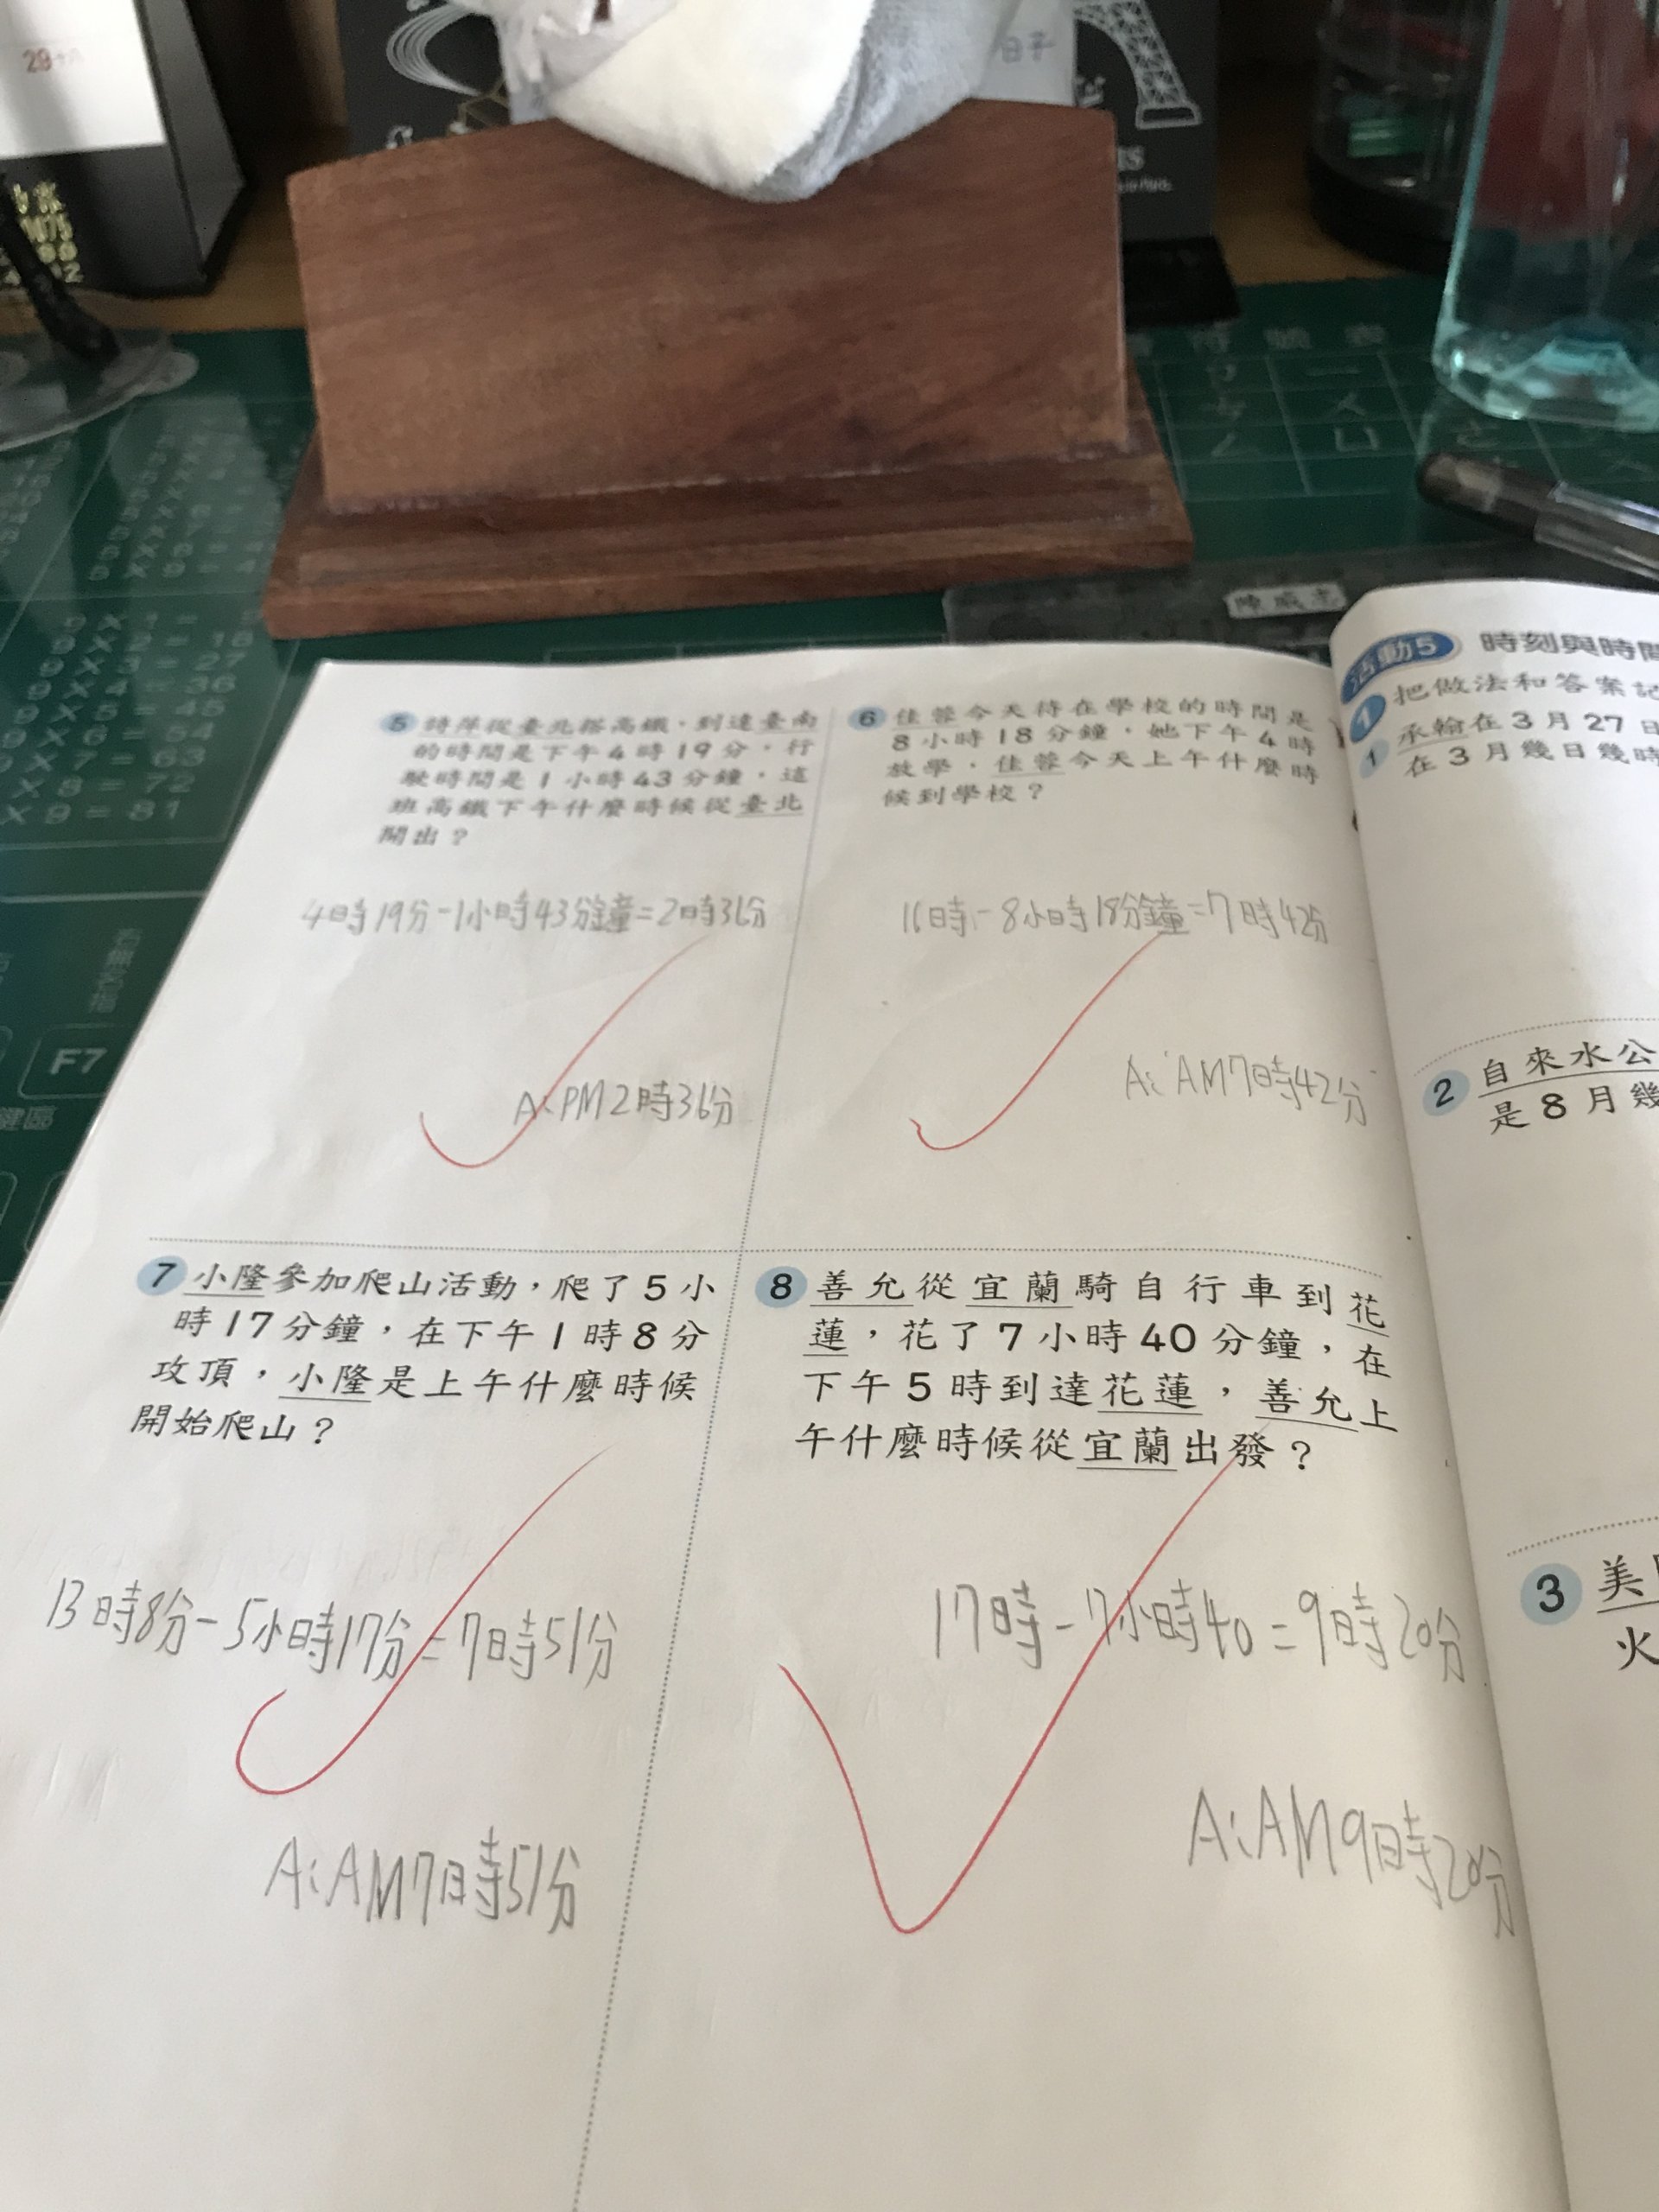 29
日子
1075
IS
in Paris.
符號表
5×9=4
9×1=
9×2=18
9×3=27
9×4=36
9×5=45
9×6=54
9×7=63
×8=72
×9=81
右無名指
F7
鍵區
5 詩萍從臺北搭高鐵,到達臺南
的時間是下午4時19分,行
駛時間是1小時43分鐘,這
班高鐵下午什麼時候從臺北
開出?
4時19分-1小時43分鐘=2時36分
A:PM2時36分
6 佳蓉今天待在學校的時間是
8小時18分鐘,她下午4時
放學,佳蓉今天上午什麼時
候到學校?
16時-8小時18分鐘=7時42分
A:AM7時42分
7 小隆參加爬山活動,爬了5小
時17分鐘,在下午1時8分
攻頂,小隆是上午什麼時候
開始爬山?
13時8分-5小時17分=7時51分
A:AM7時51分
8 善允從宜蘭騎自行車到花
蓮,花了7小時40分鐘,在
下午5時到達花蓮,善允上
午什麼時候從宜蘭出發?
17時-7小時40=9時20分
A:AM9時20分
活動5 時刻與時間
1 把做法和答案記
1 承翰在3月27日
在3月幾日幾時
2 自來水公
是8月幾
3 美
火